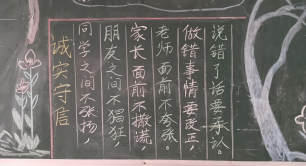 说错了话要承认。
做错事情要改正，
老师面前不夸张。
家长面前不撒谎，
朋友之间不猖狂，
同学之间不张扬，
诚实守信